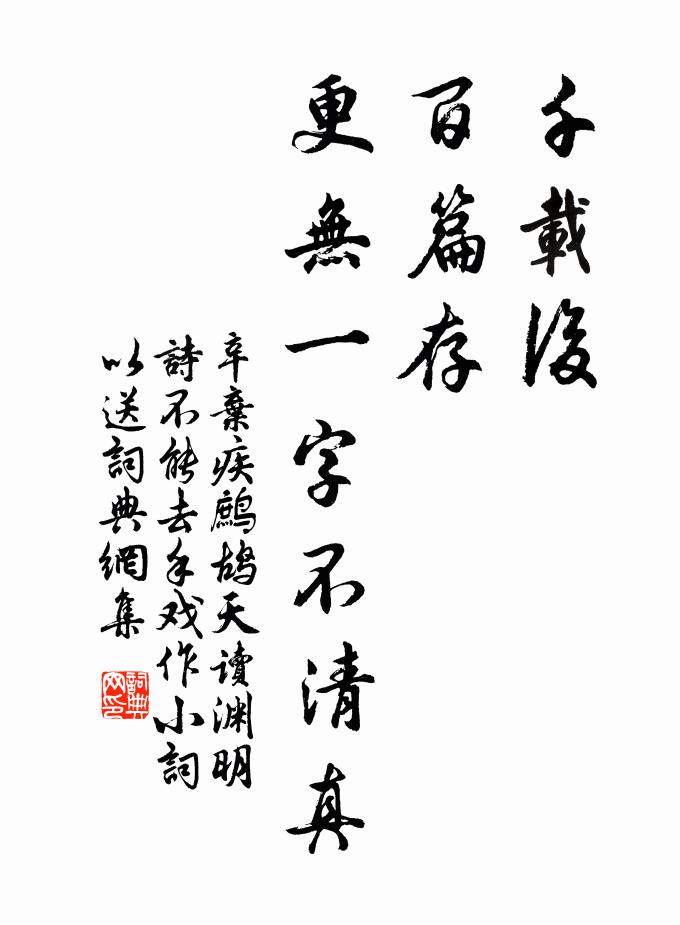 千載後
百篇存
更無一字不清真
辛棄疾鷓鴣天讀渊明
詩不能去手戏作小詞
以送詞典網集
詞典
网印